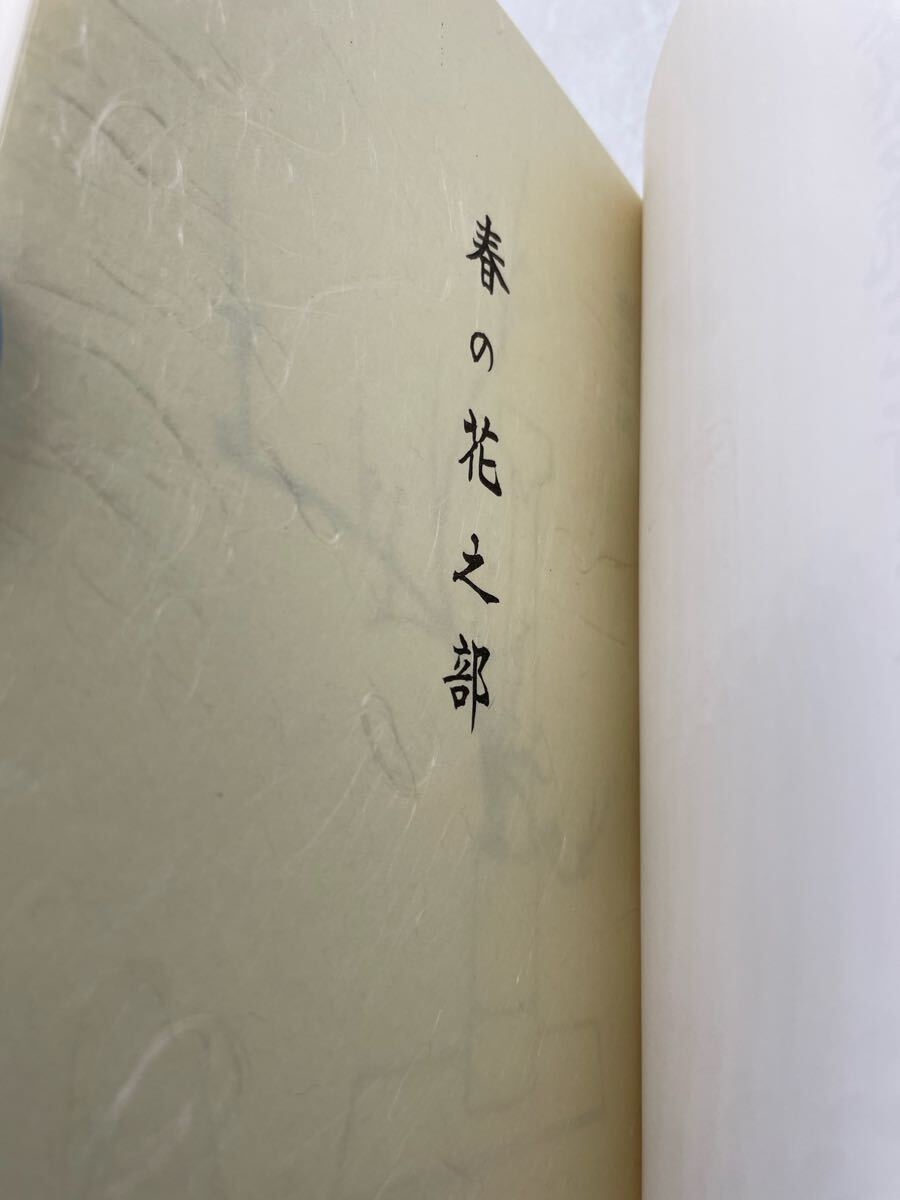 春の花之部